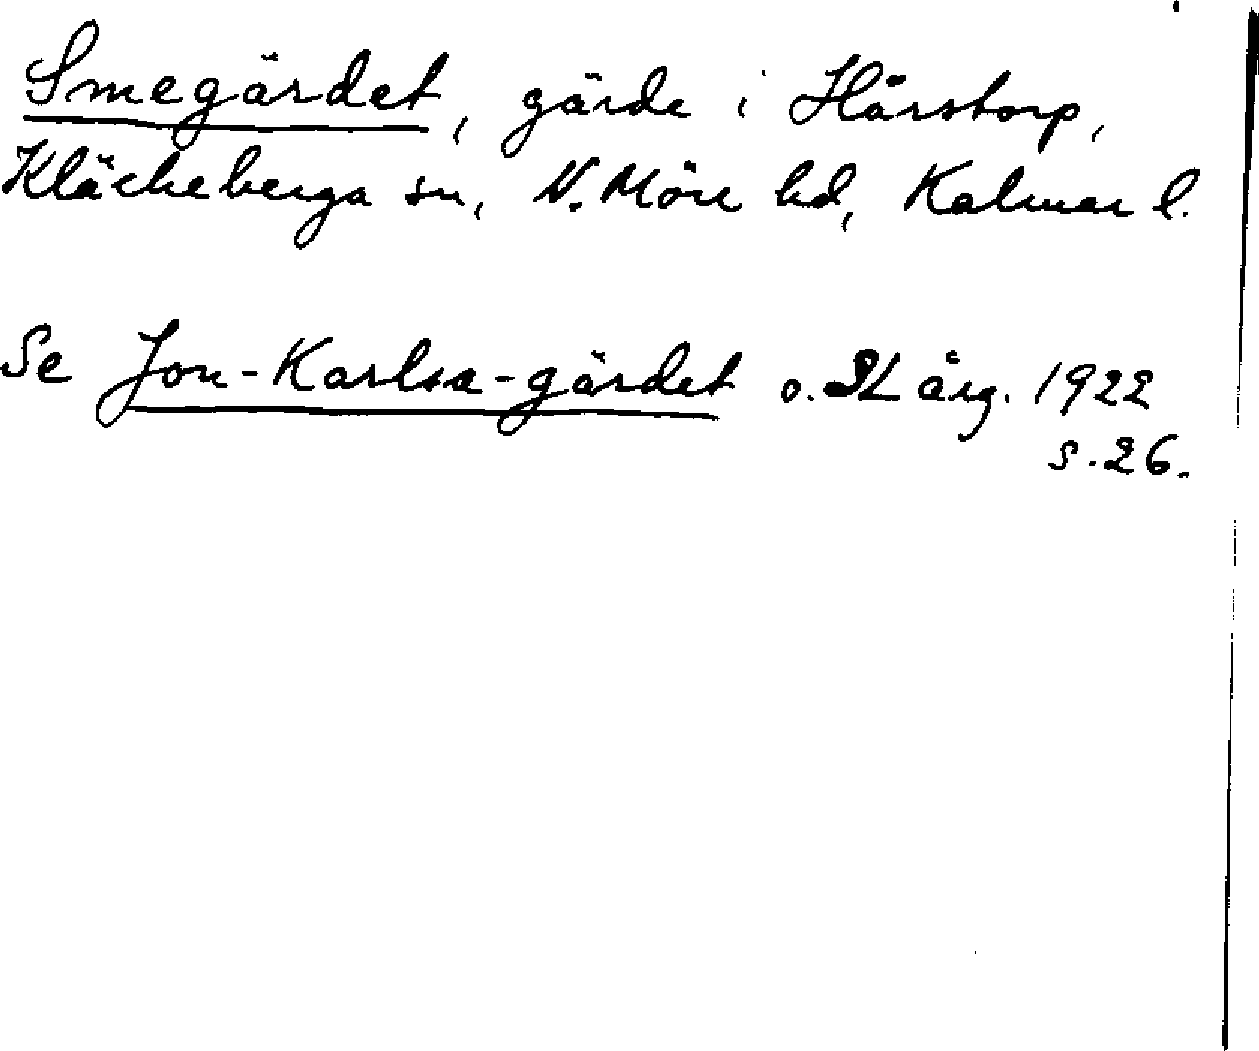 Smegärdet, gärde i Hårstorp,
Kläckeberga sn, N. Möre hd, Kalmar l.
Se Jon-Karlsa-gärdet o. SL årg. 1922
s. 26.